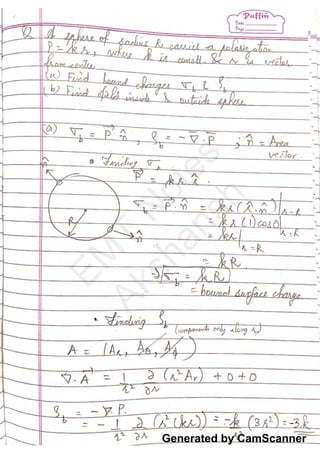 Puffin
Date
Page
Q. A sphere of radius R carries a polarisation
P = k r, where k is constt. & r is vector
from centre.
(a) Find bound charges σb & ρb
(b) Find field inside & outside sphere.
(a) σb = P⃗·n̂ , ρb = -∇·P⃗ ; n̂ = Area
vector.
• Finding σb
n̂
P⃗ = k r r̂ .
σb = P⃗·n̂ = kr(r̂·n̂)|r=R
= kr(1)cos0|r=R
R
= kr|r=R
n̂
= kR
⇒ σb = kR
= bound surface charge.
• Finding ρb
(components only along r)
A = (Ar, Aθ, Aφ)
∇·A⃗ = 1/r² ∂/∂r (r²Ar) + 0 + 0
ρb = -∇·P.
= - 1/r² ∂/∂r (r²(kr)) = -k/r² (3r²) = -3k
EM
Akanksh
Generated by CamScanner